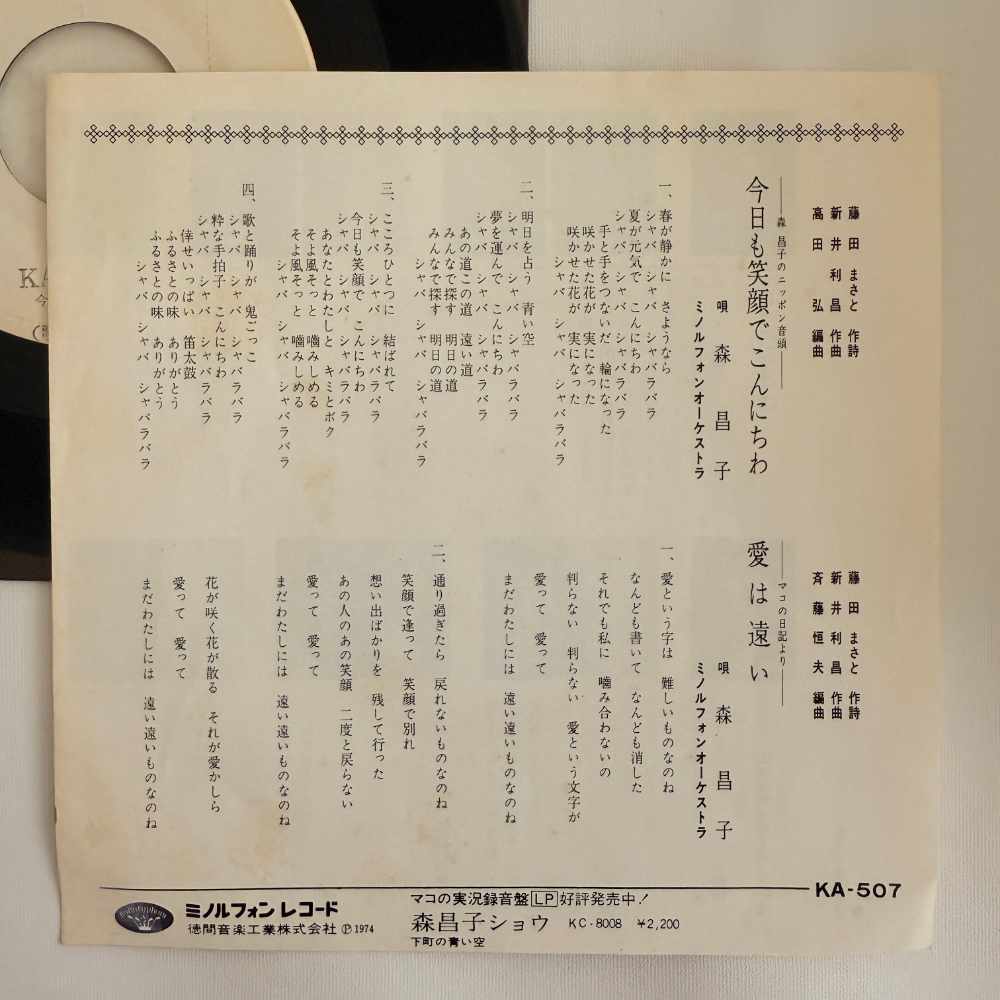 藤田まさと 作詩
新井利昌 作曲
高田弘 編曲
―森 昌子のニッポン音頭―
今日も笑顔でこんにちわ
唄 森昌子
ミノルフォンオーケストラ
一、春が静かに さようなら
シャバ シャバ シャバラバラ
夏が元気で こんにちわ
シャバ シャバ シャバラバラ
手と手をつないだ 輪になった
咲かせた花が 実になった
咲かせた花が 実になった
シャバ シャバ シャバラバラ
二、明日を占う 青い空
シャバ シャバ シャバラバラ
夢を運んで こんにちわ
シャバ シャバ シャバラバラ
あの道この道 遠い道
みんなで探す 明日の道
みんなで探す 明日の道
シャバ シャバ シャバラバラ
三、こころひとつに 結ばれて
シャバ シャバ シャバラバラ
今日も笑顔で こんにちわ
シャバ シャバ シャバラバラ
あなたとわたしと キミとボク
そよ風そっと 嚙みしめる
そよ風そっと 嚙みしめる
シャバ シャバ シャバラバラ
四、歌と踊りが 鬼ごっこ
シャバ シャバ シャバラバラ
粋な手拍子 こんにちわ
シャバ シャバ シャバラバラ
倖せいっぱい 笛太鼓
ふるさとの味 ありがとう
ふるさとの味 ありがとう
シャバ シャバ シャバラバラ
藤田まさと 作詩
新井利昌 作曲
斉藤恒夫 編曲
―マコの日記より―
愛は遠い
唄 森昌子
ミノルフォンオーケストラ
一、愛という字は 難しいものなのね
なんども書いて なんども消した
それでも私に 嚙み合わないの
判らない 判らない 愛という文字が
愛って 愛って
まだわたしには 遠い遠いものなのね
二、通り過ぎたら 戻れないものなのね
笑顔で逢って 笑顔で別れ
想い出ばかりを 残して行った
あの人のあの笑顔 二度と戻らない
愛って 愛って
まだわたしには 遠い遠いものなのね
花が咲く花が散る それが愛かしら
愛って 愛って
まだわたしには 遠い遠いものなのね
KA-507
ミノルフォンレコード
徳間音楽工業株式会社 Ⓟ1974
マコの実況録音盤LP好評発売中!
森昌子ショウ KC-8008 ¥2,200
下町の青い空